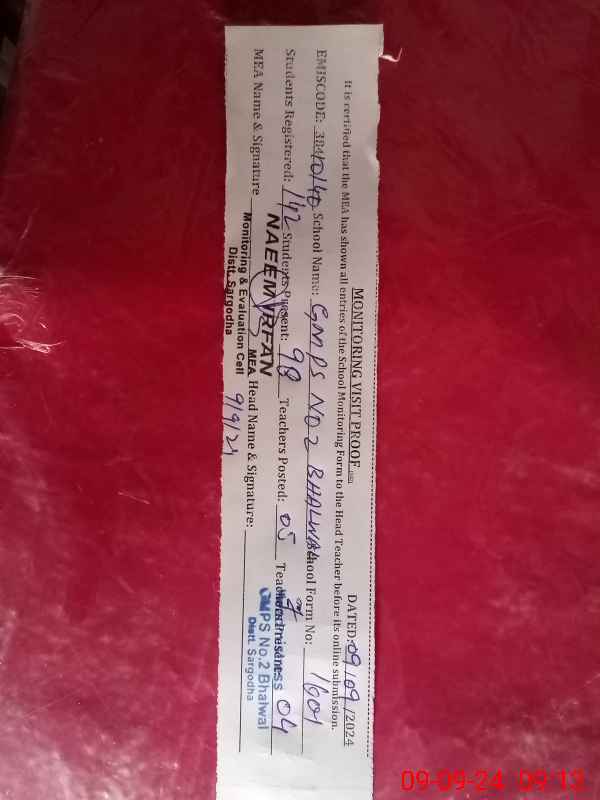 MONITORING VISIT PROOF DATED: 09/09/2024
It is certified that the MEA has shown all entries of the School Monitoring Form to the Head Teacher before its online submission.
EMISCODE: 38410140 School Name: GMPS NO 2 BHALWAL School Form No: 1601
Students Registered: 142 Students Present: 98 Teachers Posted: 05 Teachers Present: 04
MEA Name & Signature NAEEM IRFAN MEA Head Name & Signature:
Monitoring & Evaluation Cell
Distt. Sargodha
9/9/24
GMPS No.2 Bhalwal
Distt. Sargodha
09-09-24 09:13